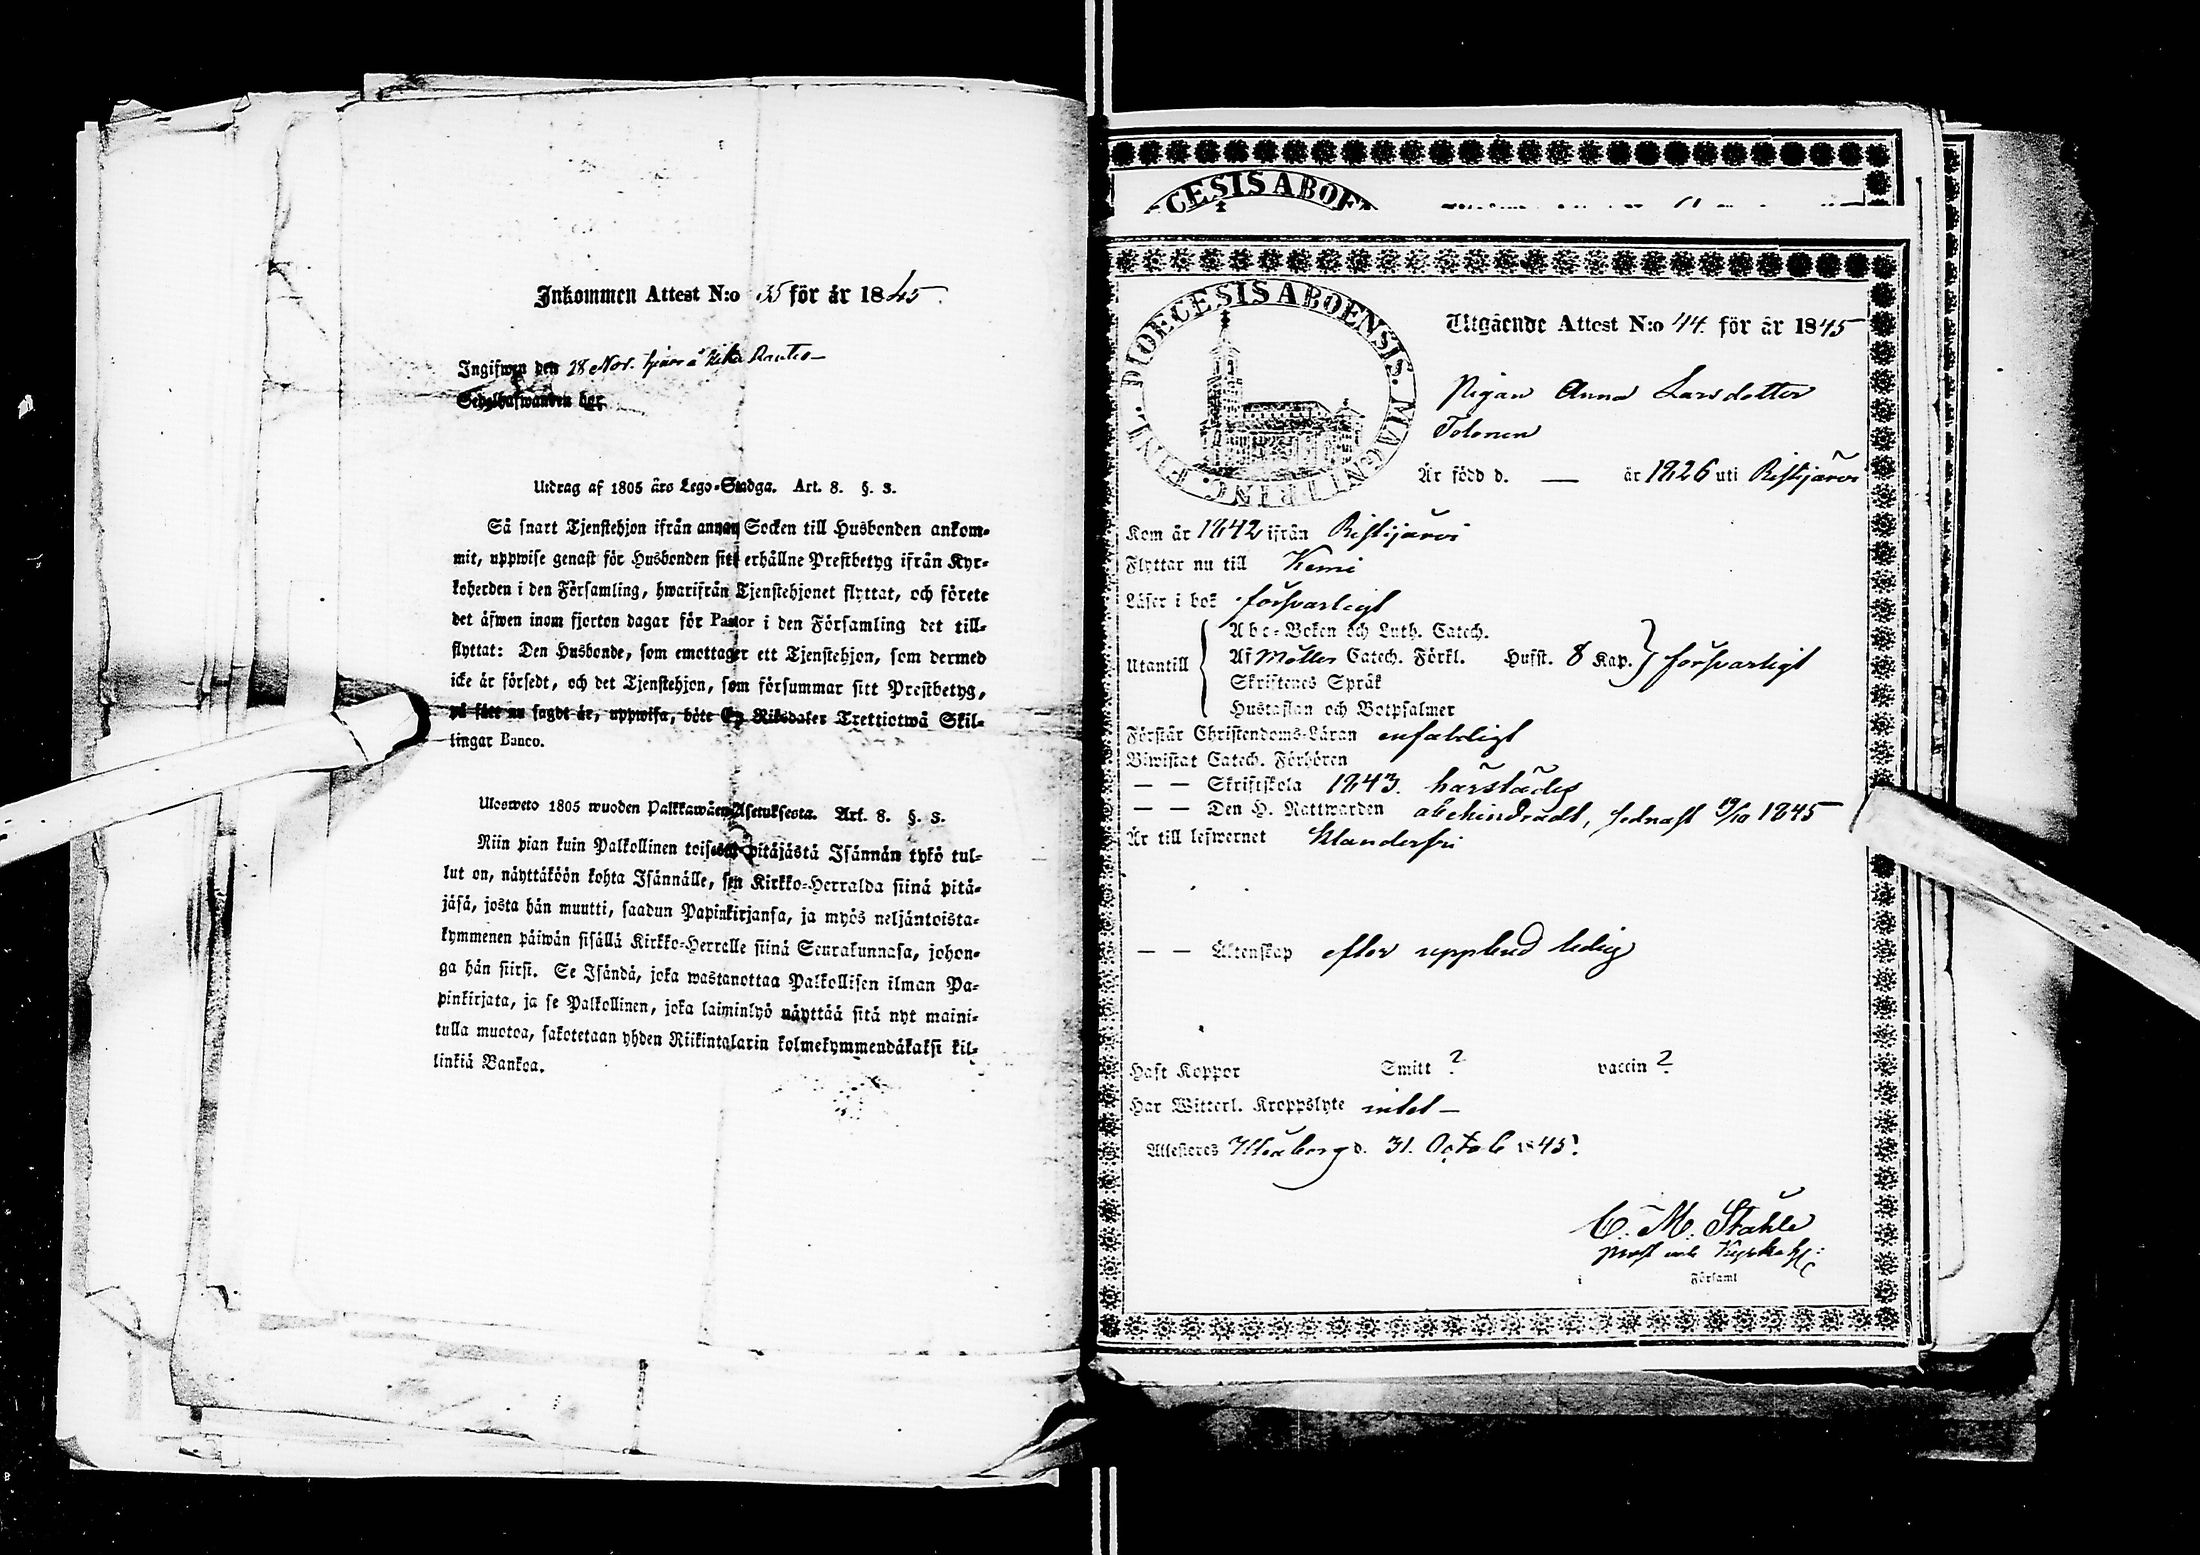 Inkommen Attest N:o 35 för år 1845.
Ingifwen den 28 Nov. tjenar å Rautio
Sedelhafwanden bor
Utdrag af 1805 års Lego-Stadga. Art. 8. §. 3.
Så snart Tjenstehjon ifrån annan Socken till Husbonden ankom-
mit, uppwise genast för Husbonden sitt erhållne Prestbetyg ifrån Kyr-
koherden i den Församling, hwarifrån Tjenstehjonet flyttat, och förete
det äfwen inom fjorton dagar för Pastor i den Församling det till-
flyttat: Den Husbonde, som emottager ett Tjenstehjon, som dermed
icke är försedt, och det Tjenstehjon, som försummar sitt Prestbetyg,
på sätt nu sagdt är, uppwisa, böte En Riksdaler Trettiotwå Skil-
lingar Banco.
Ulosweto 1805 wuoden Palkkawäen Asetuksesta. Art. 8. §. 3.
Niin pian kuin Palkollinen toisesta pitäjästä Isännän tykö tul-
lut on, näyttäköön kohta Isännälle, sen Kirkko-Herralda siinä pitä-
jäsä, josta hän muutti, saadun Papinkirjansa, ja myös neljäntoista-
kymmenen päiwän sisällä Kirkko-Herralle siinä Seurakunnasa, johon-
ga hän siirsi. Se Isändä, joka wastanottaa Palkollisen ilman Pa-
pinkirjata, ja se Palkollinen, joka laiminlyö näyttää sitä nyt maini-
tulla muotoa, sakotetaan yhden Riikintalarin kolmekymmendäkaksi kil-
linkiä Bankoa.
CESIS ABOE
DIOECESIS ABOENSIS. MAGNI PRINC. FINL.
Utgående Attest N:o 44. för år 1845
Pigan Anna Larsdotter
Tolonen
Är född d. — år 1826 uti Ristijärvi
Kom år 1842 ifrån Ristijärvi
Flyttar nu till Kemi
Läser i bok försvarligt
Utantill
Abc-Boken och Luth. Catech.
Af Möllers Catech. Förkl. Hufst. 8 Kap. försvarligt
Skriftenes Språk
Hustaflan och Botpsalmer
Förstår Christendoms-Läran enfaldigt
Biwistat Catech. Förhören
— — Skriftskola 1843. härstädes
— — Den H. Nattwarden obehindradt, sednast 19/10 1845
Är till lefwernet klanderfri
— — Äktenskap efter uppbud ledig
Haft Koppor Smitt ? vaccin ?
Har Witterl. Kroppslyte intet —
Attesteras Uleåborg d. 31. Octob 1845.
C. M. Ståhle
Prost och Kyrkoh.
i Församl